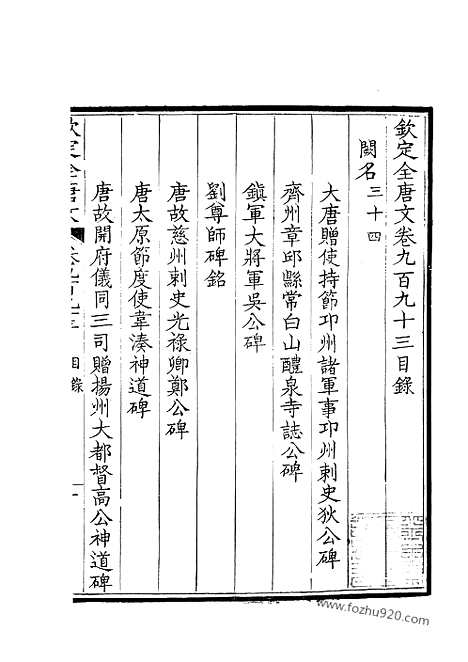 欽定全唐文卷九百九十三目錄
闕名三十四
大唐贈使持節邛州諸軍事邛州刺史狄公碑
齊州章邱縣常白山醴泉寺誌公碑
鎮軍大將軍吳公碑
劉尊師碑銘
唐故慈州刺史光祿卿鄭公碑
唐太原節度使韋湊神道碑
唐故開府儀同三司贈揚州大都督高公神道碑
欽定全唐文 卷九百九十三 目錄 一
www.fozhu920.com